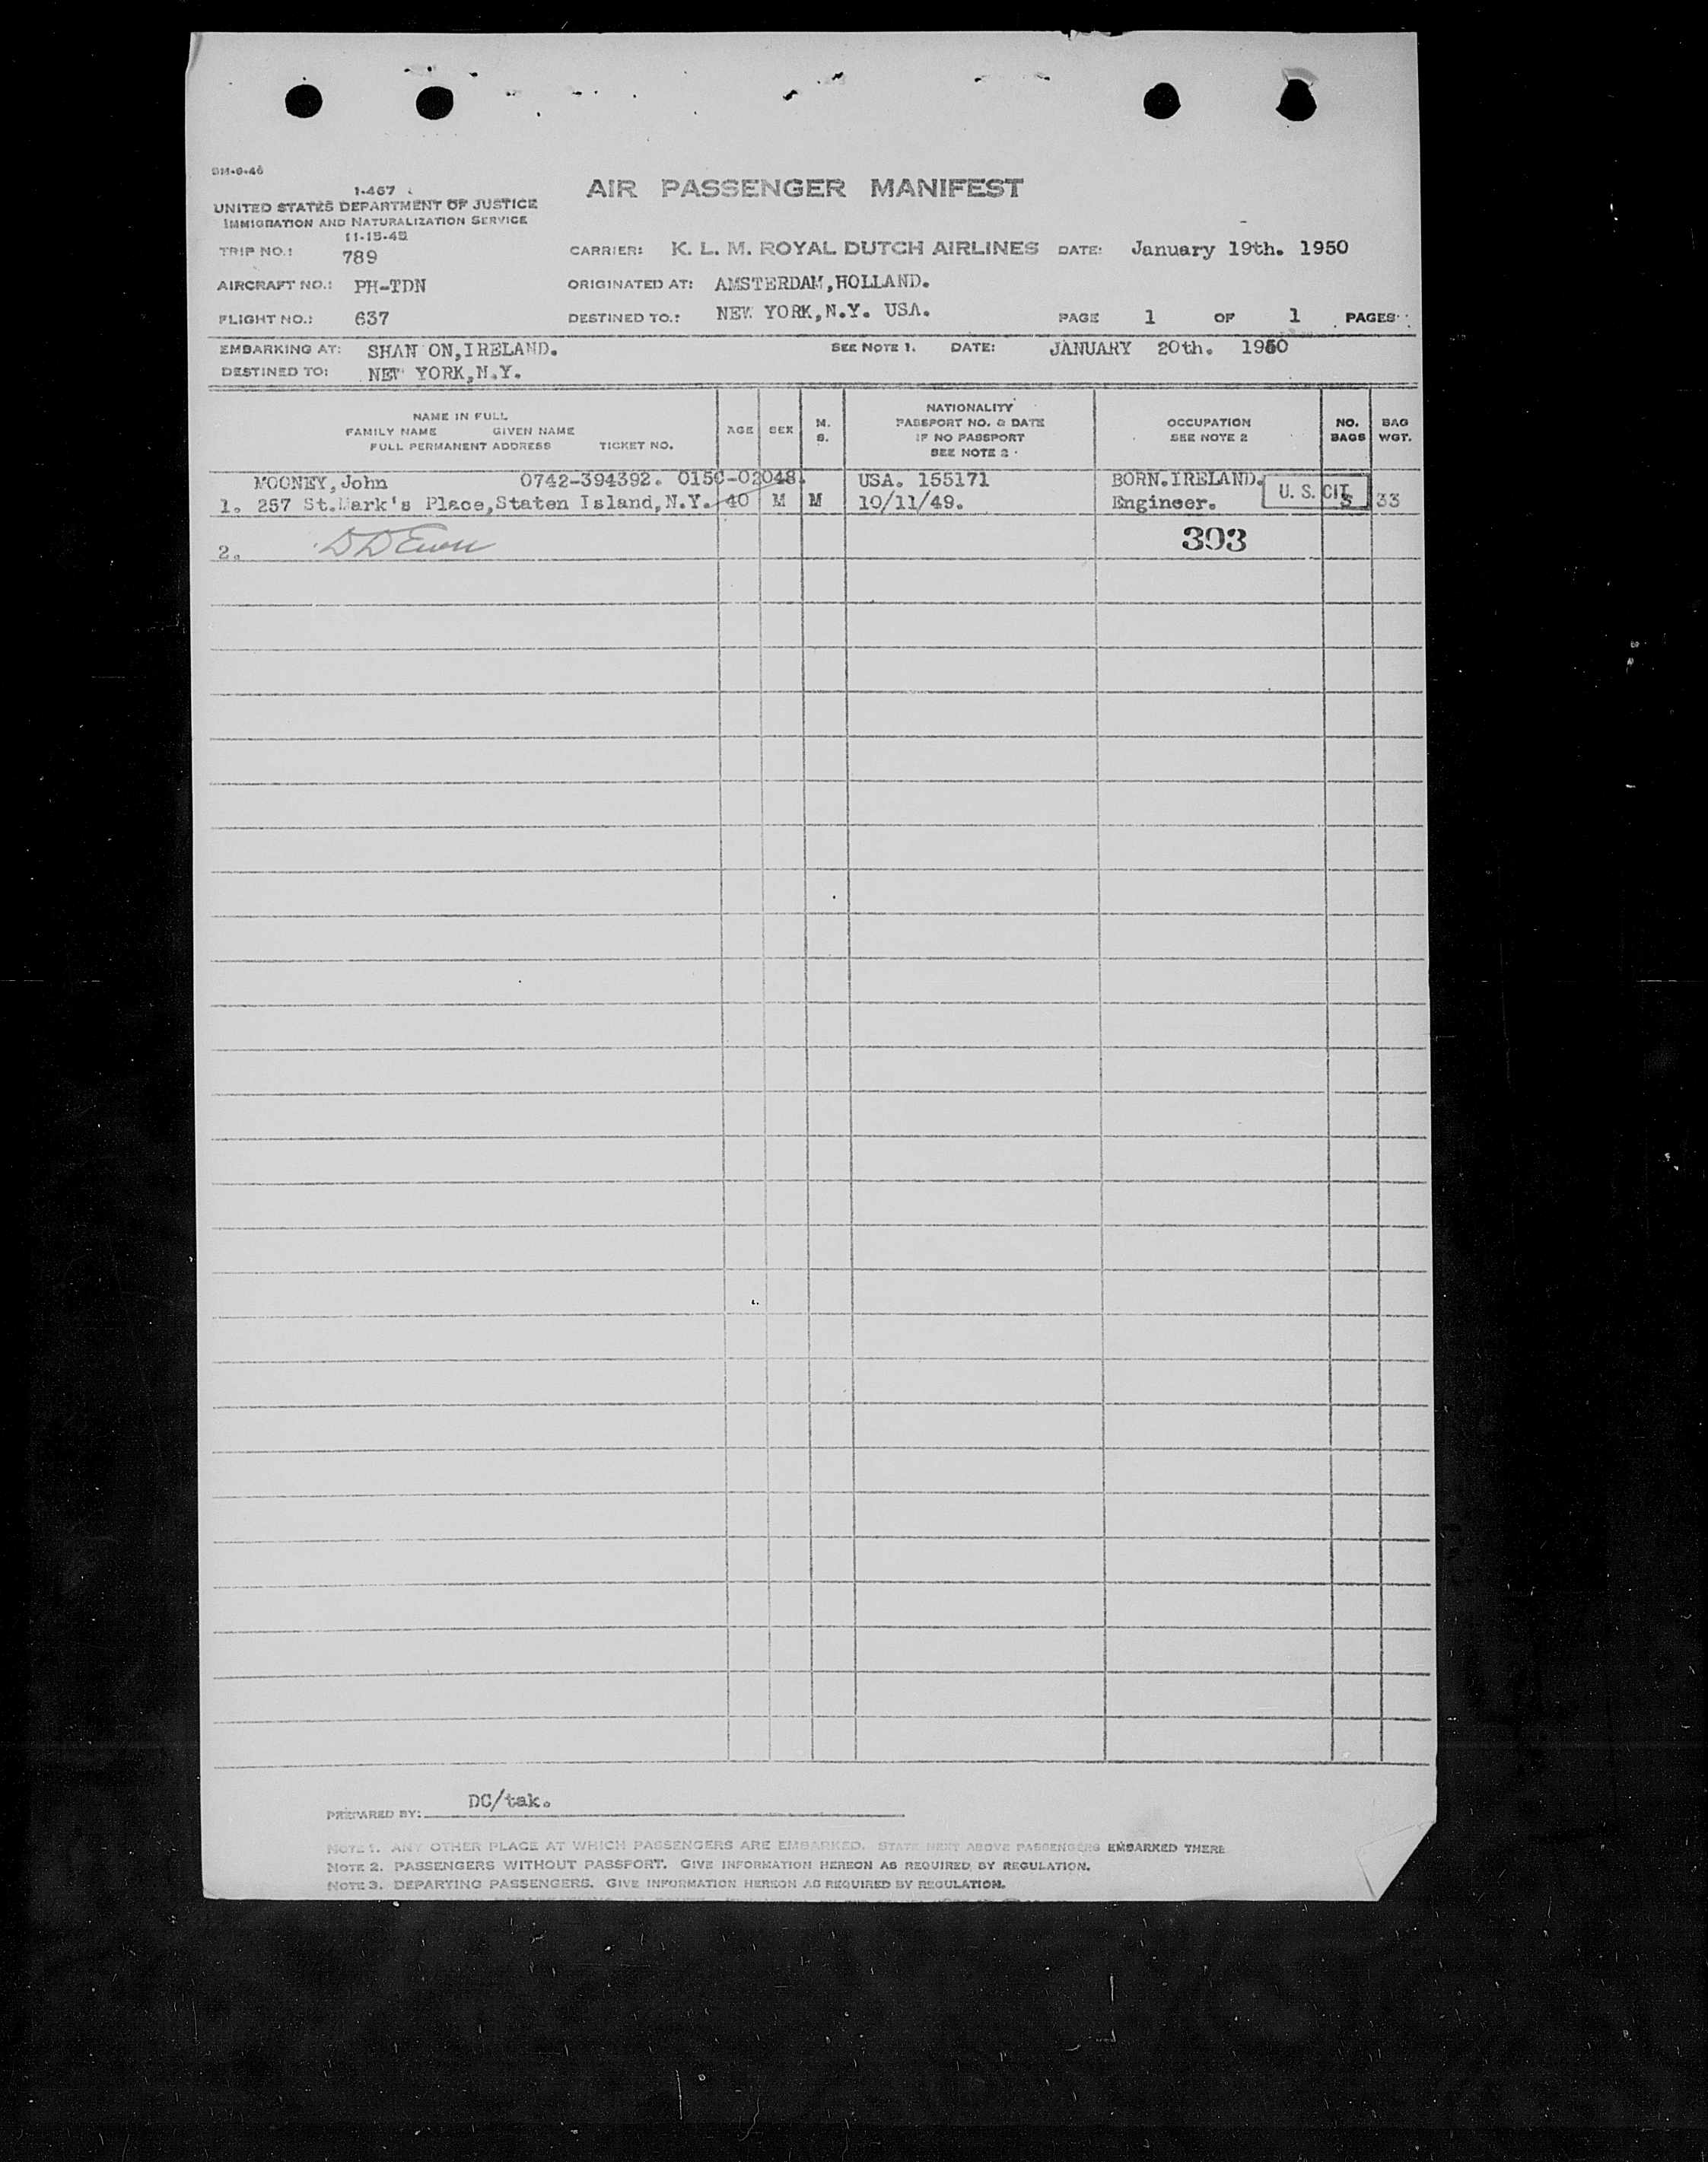 1-467
UNITED STATES DEPARTMENT OF JUSTICE
IMMIGRATION AND NATURALIZATION SERVICE
11-15-45
AIR PASSENGER MANIFEST
TRIP NO.: 789
CARRIER: K. L. M. ROYAL DUTCH AIRLINES DATE: January 19th. 1950
AIRCRAFT NO.: PH-TDN ORIGINATED AT: AMSTERDAM,HOLLAND.
FLIGHT NO.: 637 DESTINED TO.: NEW YORK,N.Y. USA. PAGE 1 OF 1 PAGES
EMBARKING AT: SHAN ON,IRELAND. SEE NOTE 1. DATE: JANUARY 20th. 1950
DESTINED TO: NEW YORK,N.Y.
NAME IN FULL
FAMILY NAME GIVEN NAME
FULL PERMANENT ADDRESS TICKET NO.
AGE SEX M. S.
NATIONALITY
PASSPORT NO. & DATE
IF NO PASSPORT
SEE NOTE 2
OCCUPATION
SEE NOTE 2
NO. BAGS
BAG WGT.
MOONEY,John 0742-394392. 015C-02048. USA. 155171 BORN.IRELAND.
1. 257 St.Mark's Place,Staten Island,N.Y. 40 M M 10/11/49. Engineer. U. S. CIT. 33
2. 393
PREPARED BY: DC/tak.
NOTE 1. ANY OTHER PLACE AT WHICH PASSENGERS ARE EMBARKED. STATE NEXT ABOVE PASSENGERS EMBARKED THERE
NOTE 2. PASSENGERS WITHOUT PASSPORT. GIVE INFORMATION HEREON AS REQUIRED BY REGULATION.
NOTE 3. DEPARTING PASSENGERS. GIVE INFORMATION HEREON AS REQUIRED BY REGULATION.